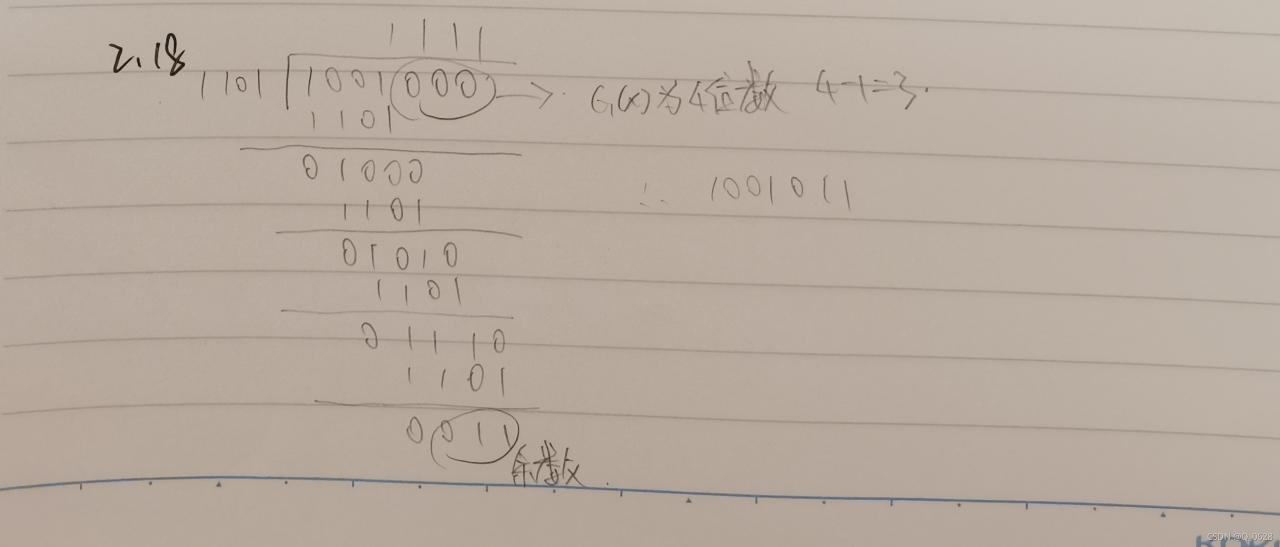 1111
2.18 1101 1001000 → G(x)为4位数 4-1=3.
1101
01000 ∴ 1001011
1101
01010
1101
01110
1101
0011 余数.
CSDN @Q_0528